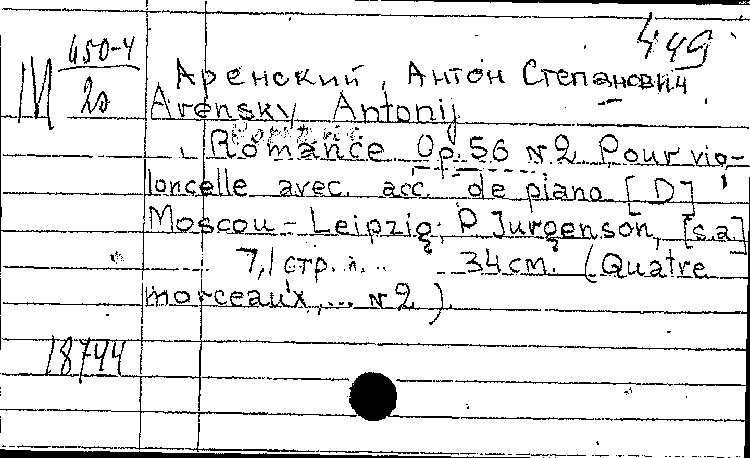 449
М 450-4
20
Аренский, Антон Степанович
Arensky Antonij
Romance Op.56 N2 Pour vio-
loncelle avec. acc. de piano [D]
Moscou - Leipzig; P. Jurgenson, [s.a]
7,1 стр. л. .. 34 см. (Quatre
morceaux, ... N2).
18744